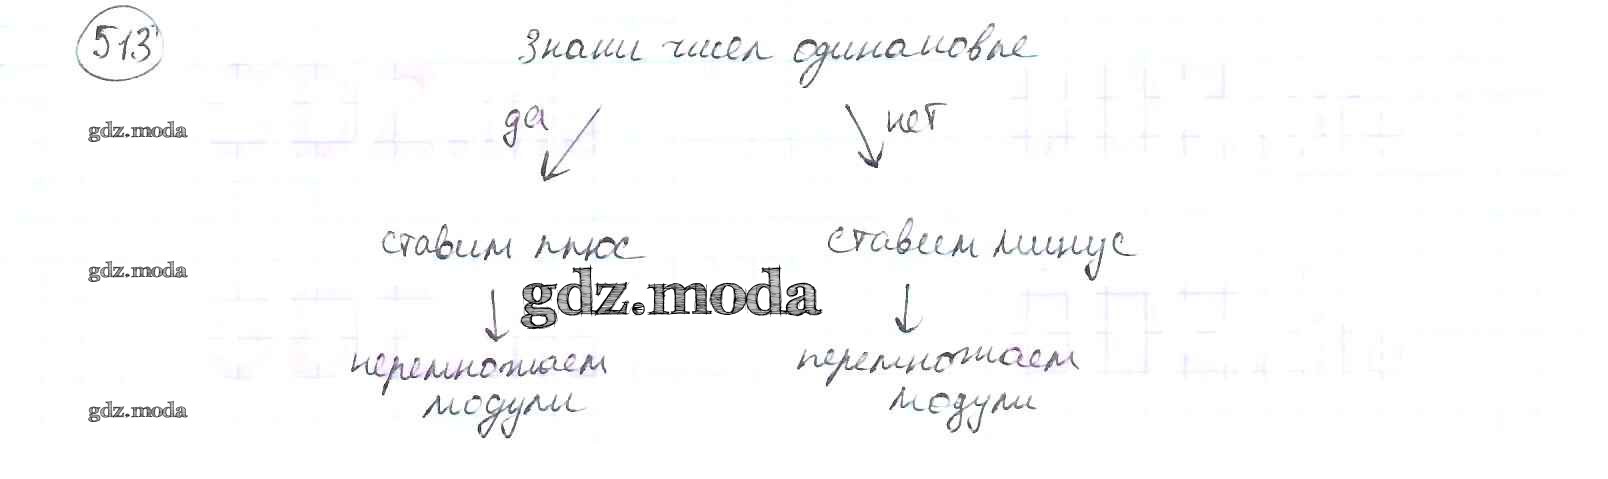 513
Знаки чисел одинаковые
да нет
gdz.moda
ставим плюс ставим минус
gdz.moda
gdz.moda
перемножаем модули перемножаем модули
gdz.moda